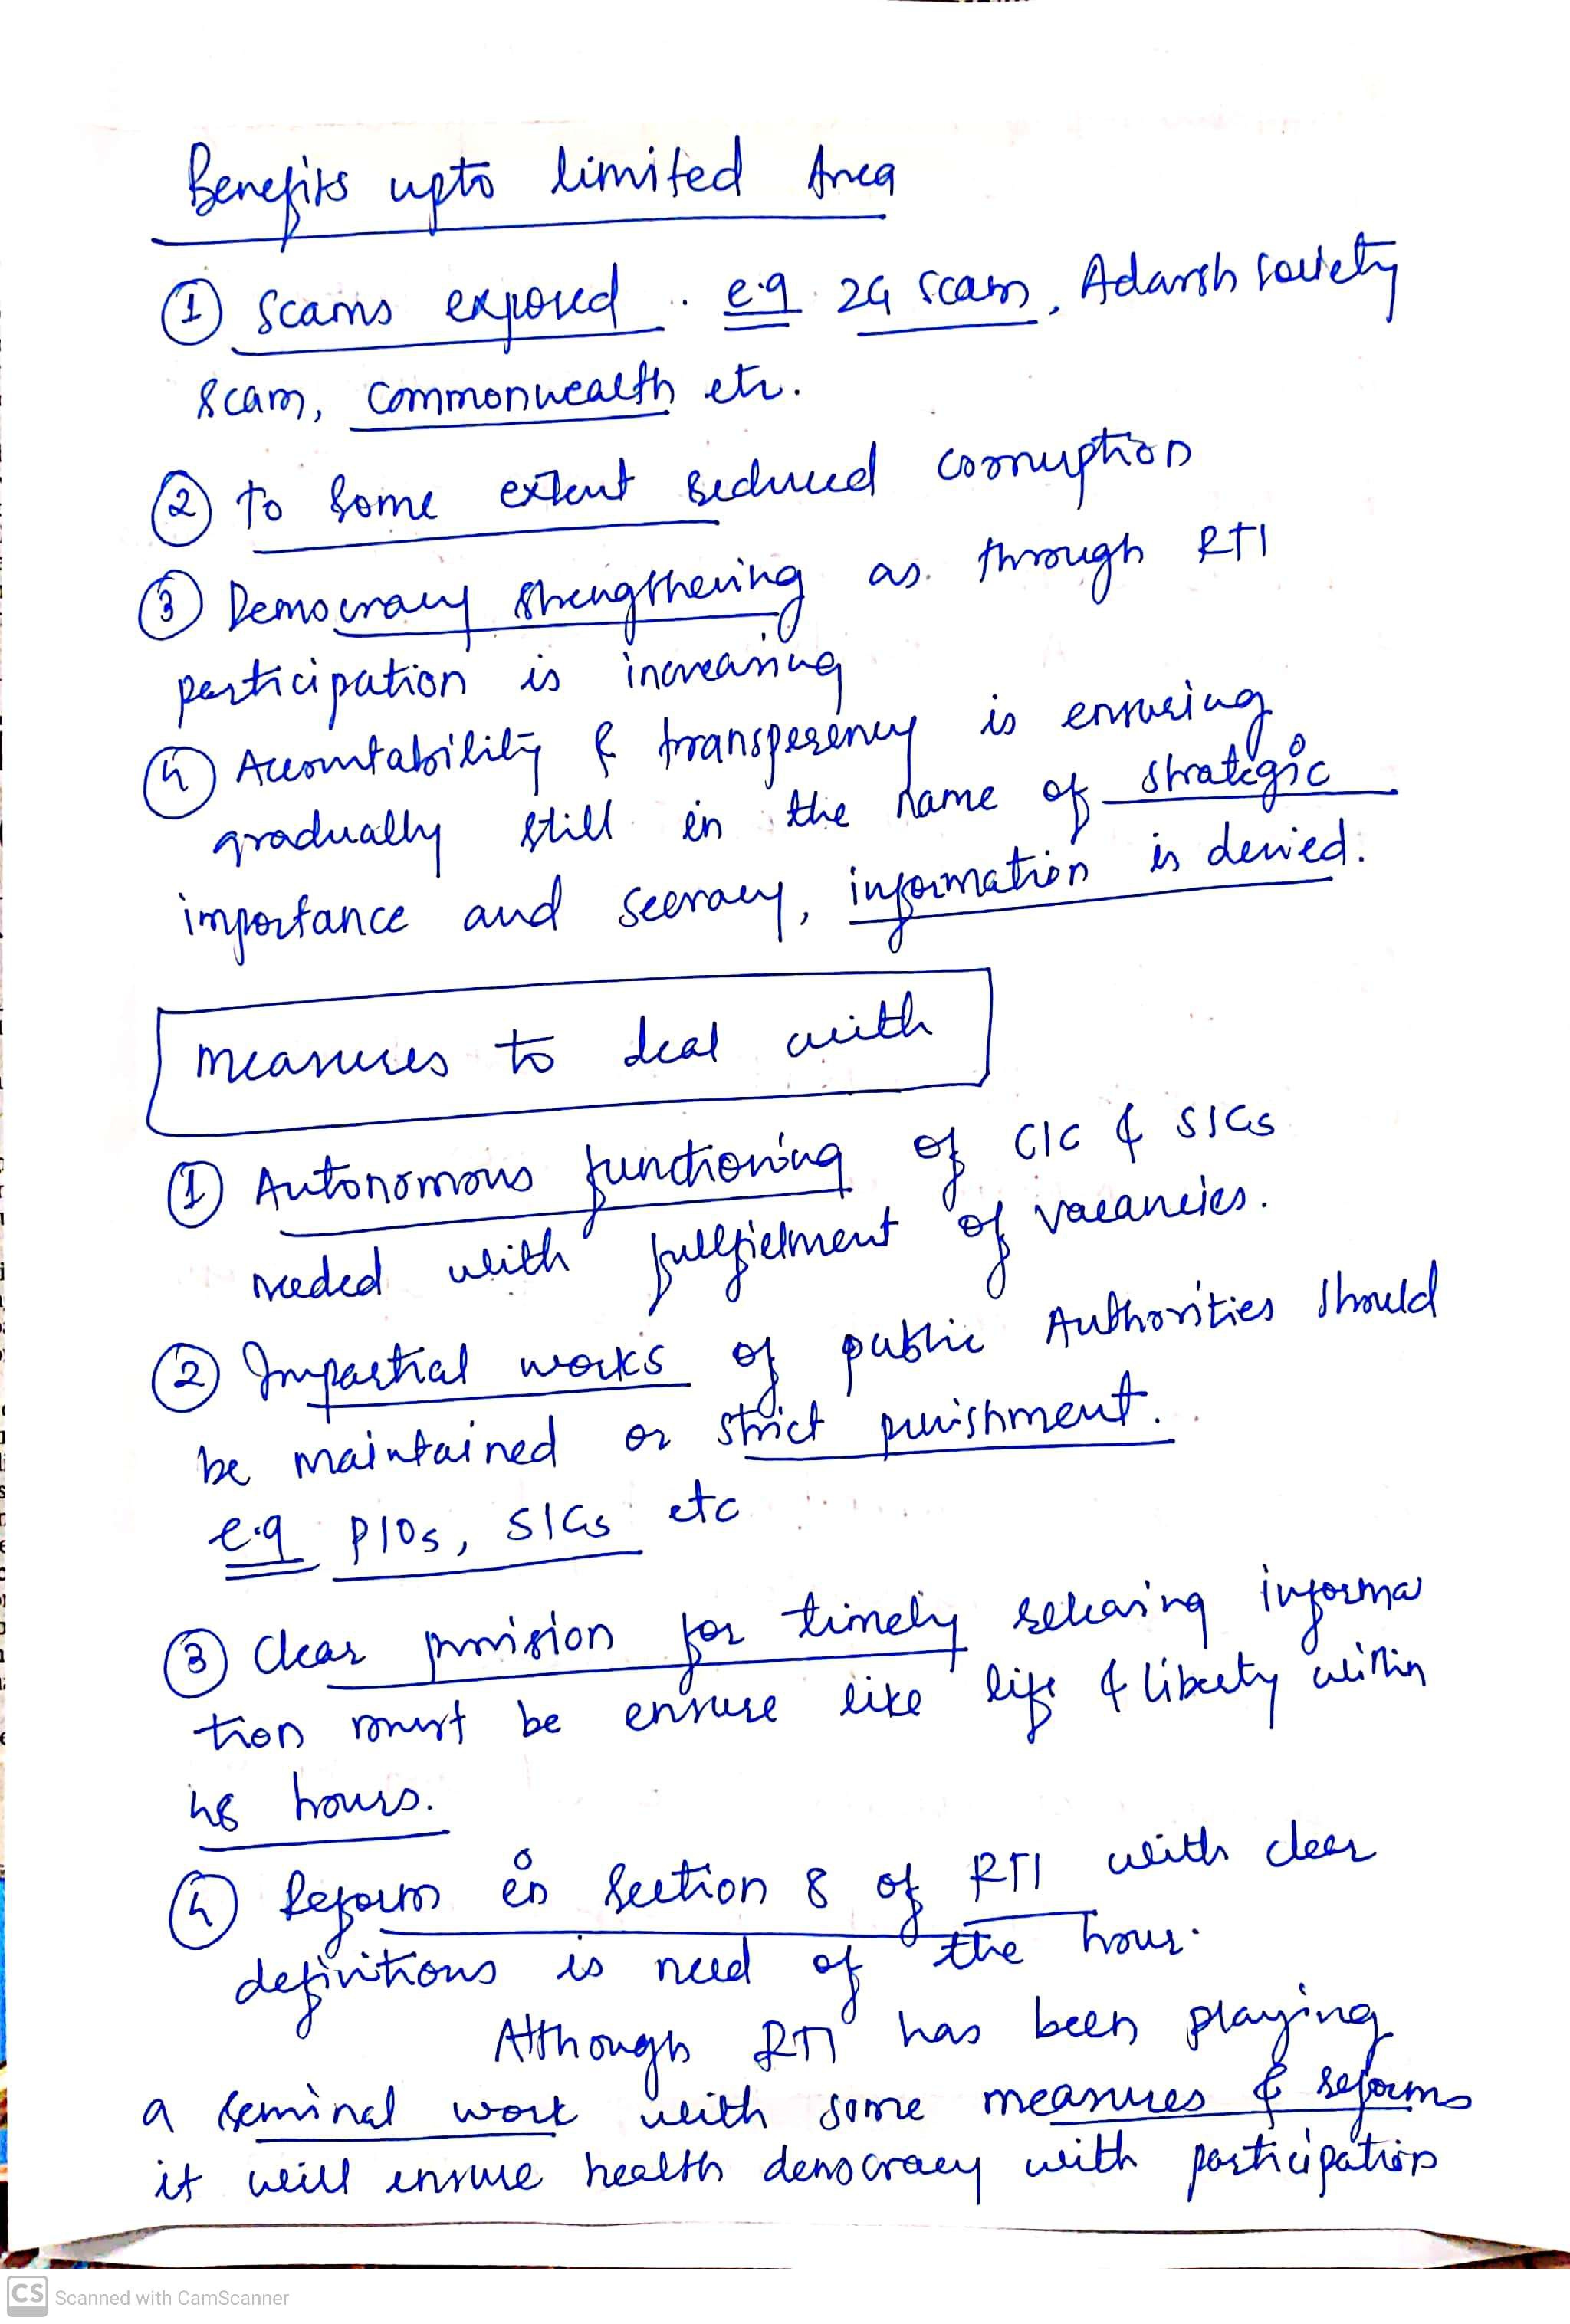 Benefits upto limited Area
① Scams exposed. e.g. 2G scam, Adarsh society
scam, commonwealth etc.
② To some extent reduced corruption
③ Democracy strengthening as through RTI
participation is increasing
④ Accountability & transperency is ensuring
gradually still in the name of strategic
importance and secracy, information is denied.
measures to deal with
① Autonomous functioning of CIC & SICs
needed with fullfielment of vacancies.
② Impartial works of public Authorities should
be maintained or strict punishment.
e.g PIOs, SICs etc
③ Clear provision for timely releasing informa
tion must be ensure like life & liberty within
48 hours.
④ Reform in Section 8 of RTI with clear
definitions is need of the hour.
Although RTI has been playing
a seminal work with some measures & reforms
it will ensure health democracy with participation
CS Scanned with CamScanner